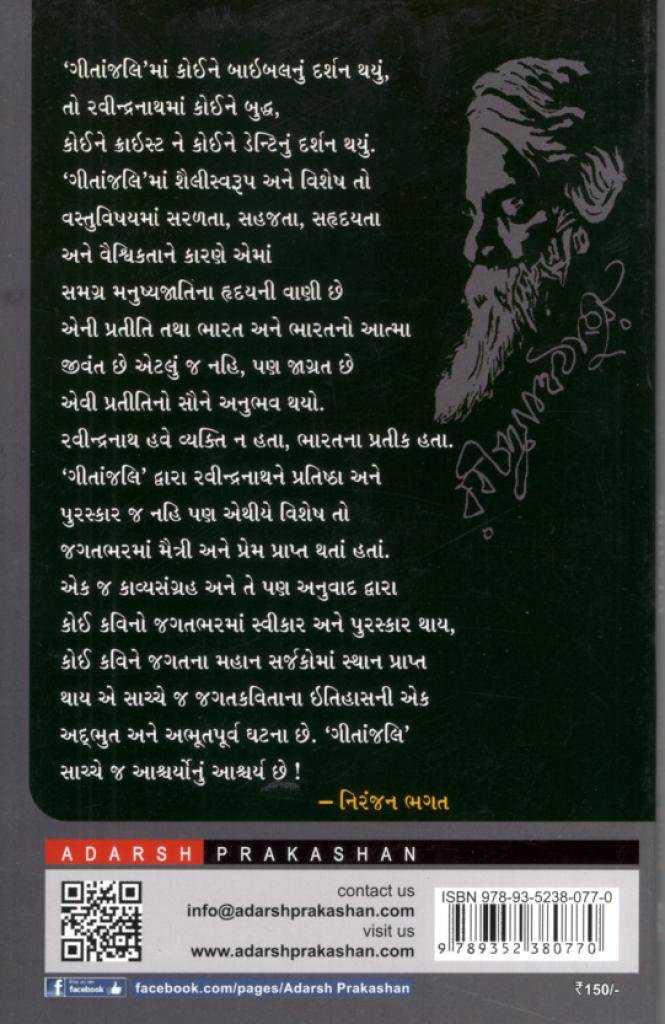 ‘ગીતાંજલિ’માં કોઈને બાઇબલનું દર્શન થયું,
તો રવીન્દ્રનાથમાં કોઈને બુદ્ધ,
કોઈને ક્રાઇસ્ટ ને કોઈને ડેન્ટિનું દર્શન થયું.
‘ગીતાંજલિ’માં શૈલીસ્વરૂપ અને વિશેષ તો
વસ્તુવિષયમાં સરળતા, સહજતા, સહૃદયતા
અને વૈશ્વિકતાને કારણે એમાં
સમગ્ર મનુષ્યજાતિના હૃદયની વાણી છે
એની પ્રતીતિ તથા ભારત અને ભારતનો આત્મા
જીવંત છે એટલું જ નહિ, પણ જાગ્રત છે
એવી પ્રતીતિનો સૌને અનુભવ થયો.
રવીન્દ્રનાથ હવે વ્યક્તિ ન હતા, ભારતના પ્રતીક હતા.
‘ગીતાંજલિ’ દ્વારા રવીન્દ્રનાથને પ્રતિષ્ઠા અને
પુરસ્કાર જ નહિ પણ એથીયે વિશેષ તો
જગતભરમાં મૈત્રી અને પ્રેમ પ્રાપ્ત થતાં હતાં.
એક જ કાવ્યસંગ્રહ અને તે પણ અનુવાદ દ્વારા
કોઈ કવિનો જગતભરમાં સ્વીકાર અને પુરસ્કાર થાય,
કોઈ કવિને જગતના મહાન સર્જકોમાં સ્થાન પ્રાપ્ત
થાય એ સાચ્ચે જ જગતકવિતાના ઇતિહાસની એક
અદ્ભુત અને અભૂતપૂર્વ ઘટના છે. ‘ગીતાંજલિ’
સાચ્ચે જ આશ્ચર્યોનું આશ્ચર્ય છે !
– નિરંજન ભગત
ADARSH PRAKASHAN
contact us
info@adarshprakashan.com
visit us
www.adarshprakashan.com
ISBN 978-93-5238-077-0
9 789352 380770
facebook
facebook.com/pages/Adarsh Prakashan
₹150/-